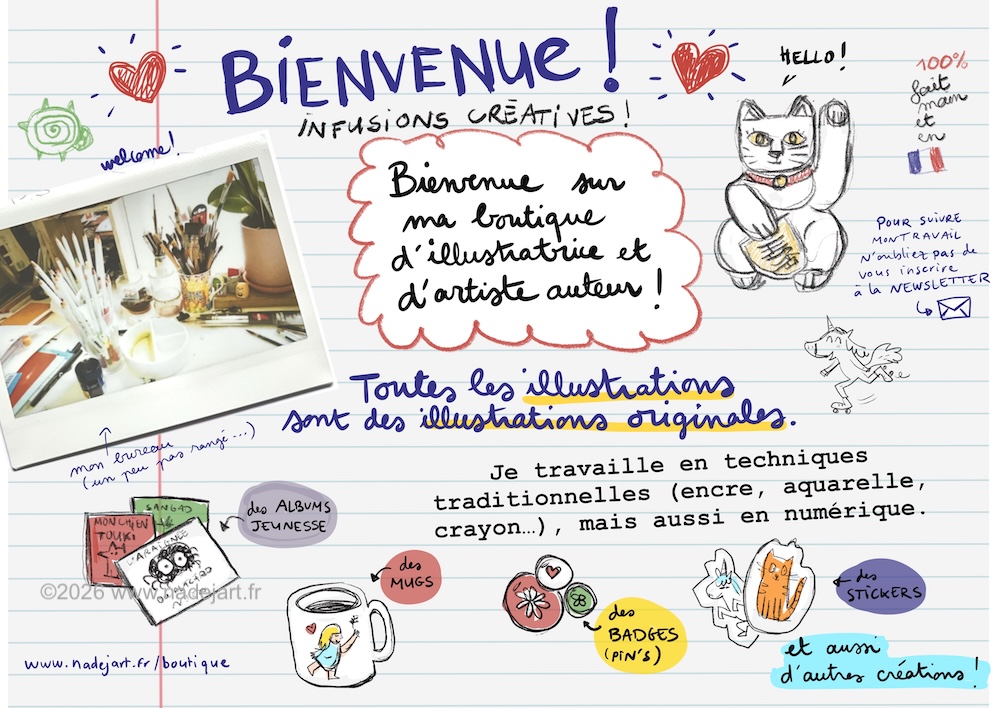 BIENVENUE !
INFUSIONS CRÉATIVES !
HELLO !
100%
fait
main
et
en
welcome !
Bienvenue sur
ma boutique
d'illustratrice et
d'artiste auteur !
POUR SUIVRE
MON TRAVAIL
N'oubliez pas de
vous inscrire
à la NEWSLETTER
Toutes les illustrations
sont des illustrations originales.
mon bureau
(un peu pas rangé...)
Je travaille en techniques
traditionnelles (encre, aquarelle,
crayon…), mais aussi en numérique.
SANGAO
MON CHIEN
TOUKI
L'ARAIGNÉE
des ALBUMS
JEUNESSE
des
MUGS
des
BADGES
(PIN'S)
des
STICKERS
©2026 www.nadejart.fr
www.nadejart.fr/boutique
et aussi
d'autres créations !